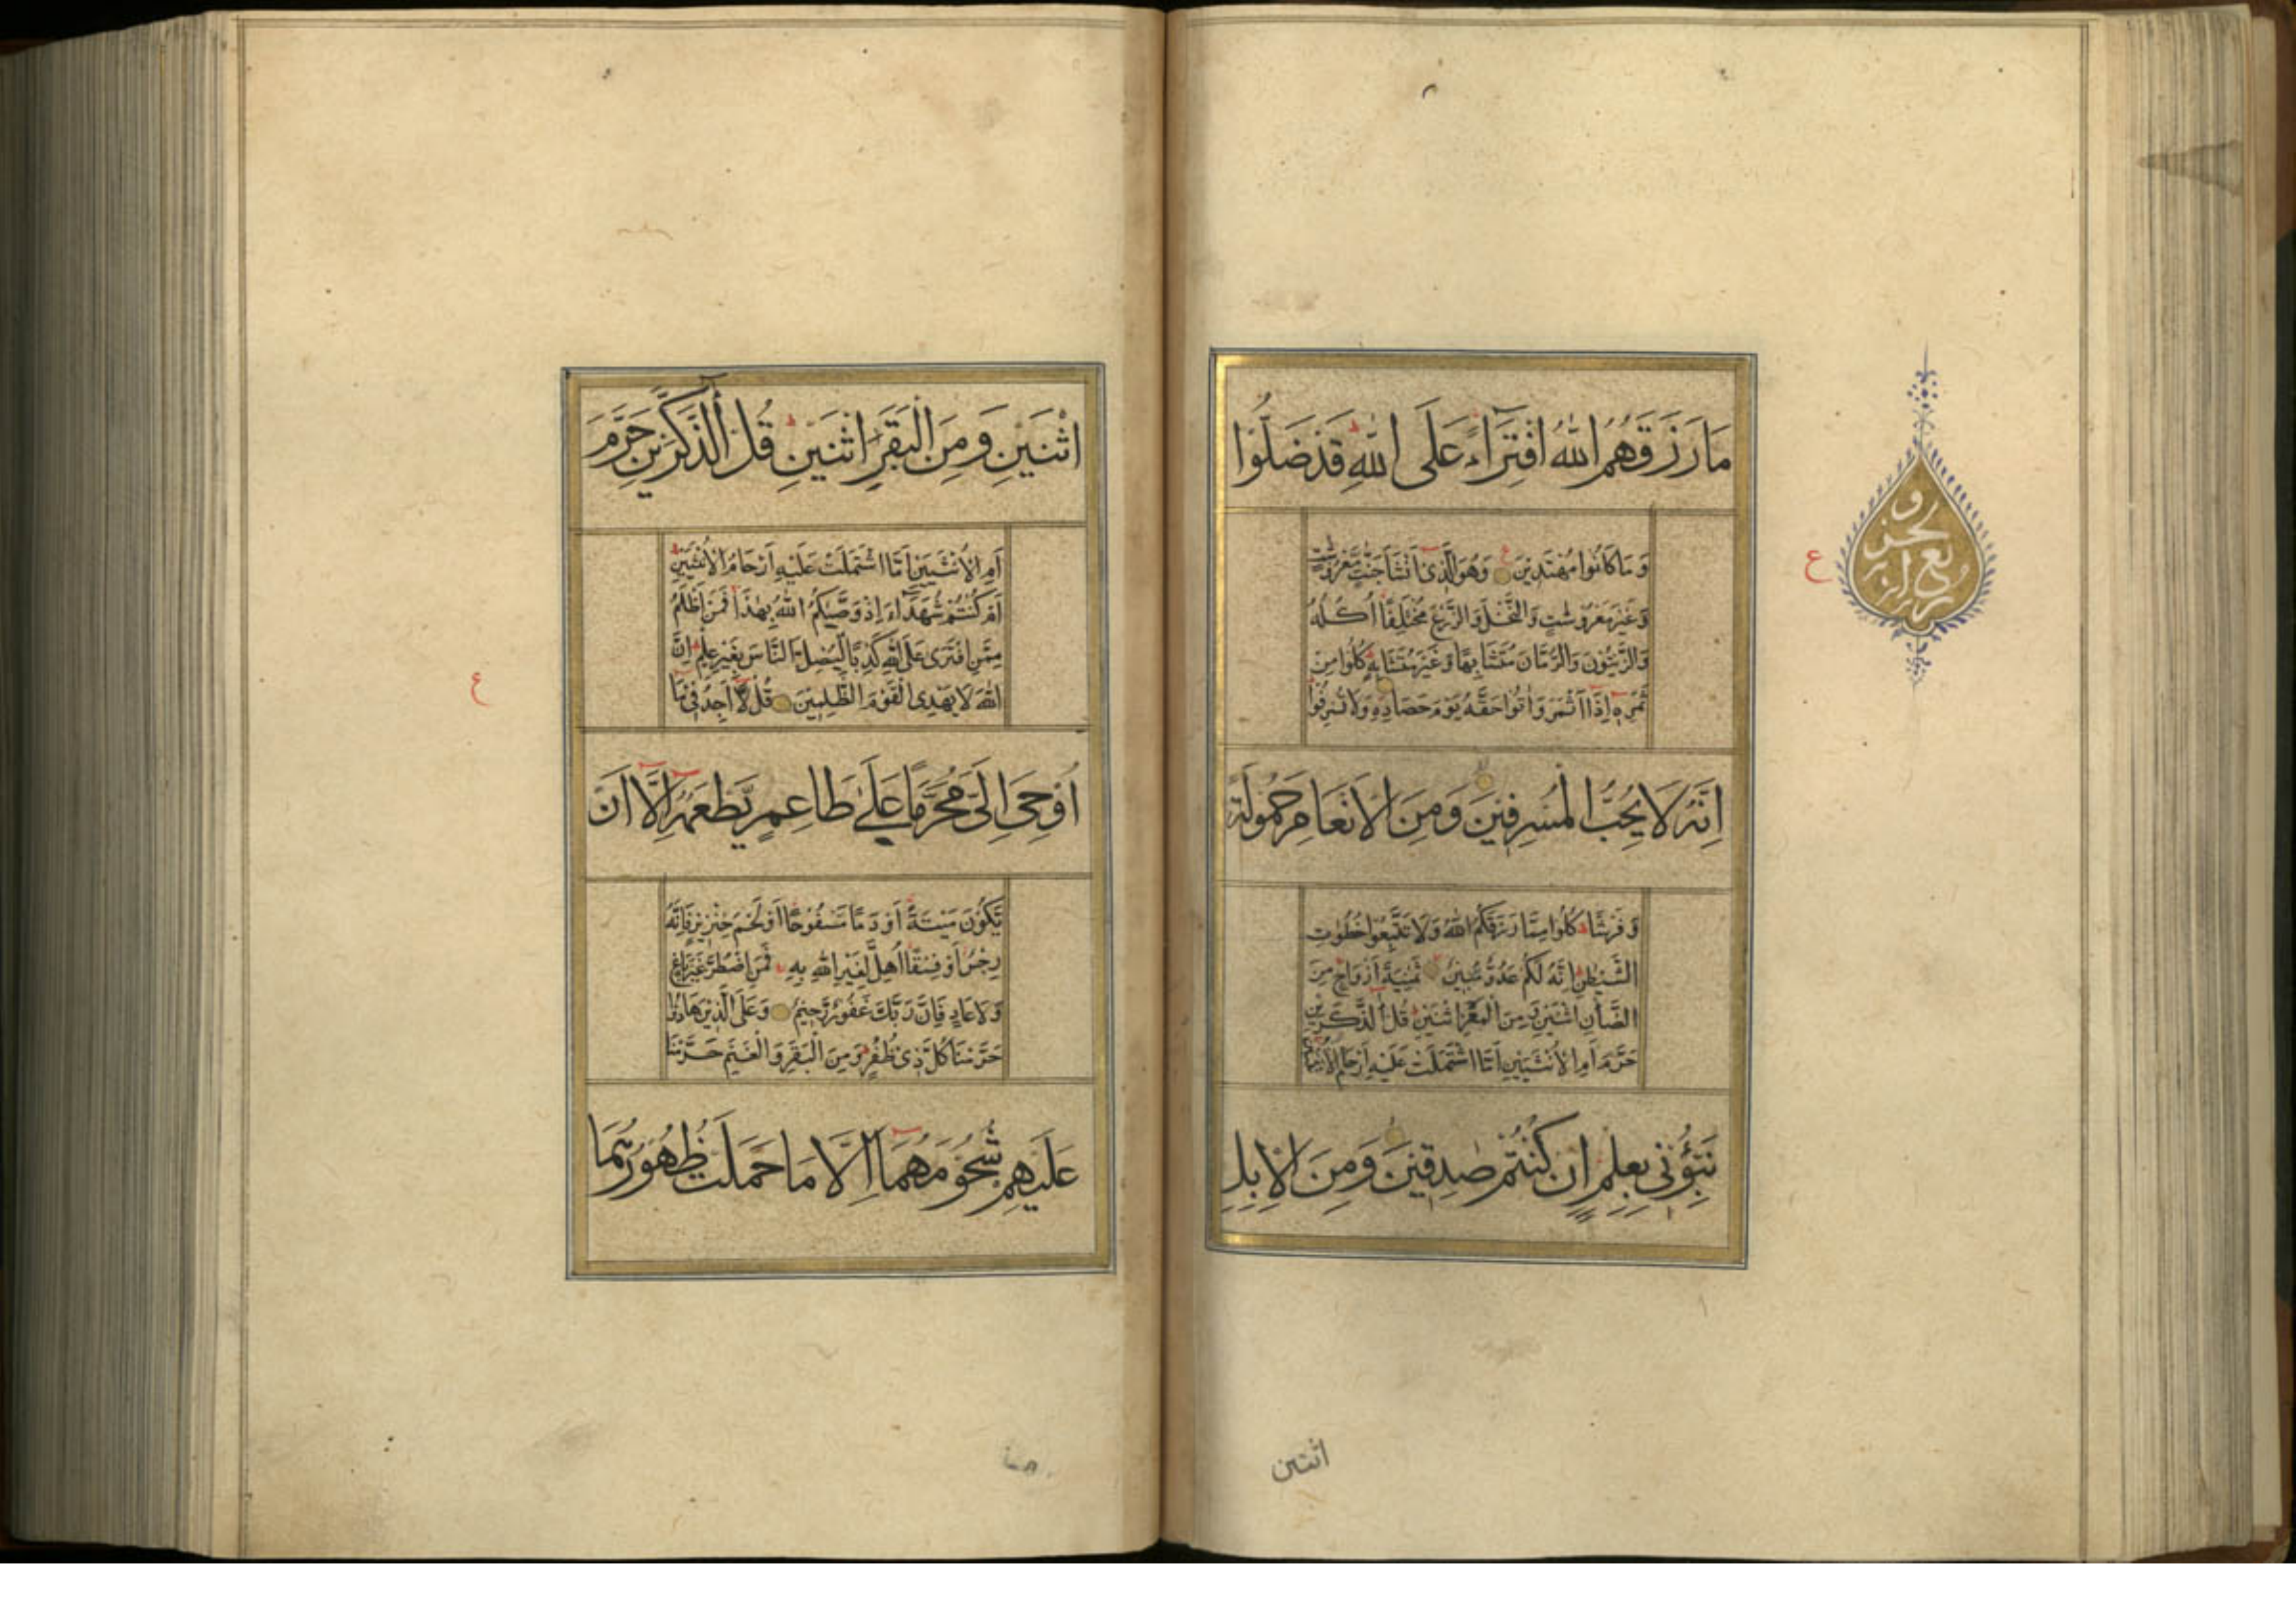 مَا رَزَقَهُمُ اللهُ افْتِرَاءً عَلَى اللهِ قَدْ ضَلُّوْا
وَ مَا كَانُوا مُهْتَدِيْنَ وَهُوَ الَّذِىْ اَنْشَاَ جَنّٰتٍ مَّعْرُوْشٰتٍ
وَّ غَيْرَ مَعْرُوْشٰتٍ وَّالنَّخْلَ وَالزَّرْعَ مُخْتَلِفًا اُكُلُهٗ
وَالزَّيْتُوْنَ وَالرُّمَّانَ مُتَشَابِهًا وَّ غَيْرَ مُتَشَابِهٍ كُلُوْا مِنْ
ثَمَرِهٖ اِذَا اَثْمَرَ وَاٰتُوْا حَقَّهٗ يَوْمَ حَصَادِهٖ وَلَا تُسْرِفُوْا
اِنَّهٗ لَا يُحِبُّ الْمُسْرِفِيْنَ وَمِنَ الْاَنْعَامِ حَمُوْلَةً
وَّ فَرْشًا كُلُوْا مِمَّا رَزَقَكُمُ اللهُ وَلَا تَتَّبِعُوْا خُطُوٰتِ
الشَّيْطٰنِ اِنَّهٗ لَكُمْ عَدُوٌّ مُّبِيْنٌ ثَمٰنِيَةَ اَزْوَاجٍ مِنَ
الضَّأْنِ اثْنَيْنِ وَ مِنَ الْمَعْزِ اثْنَيْنِ قُلْ اٰلذَّكَرَيْنِ
حَرَّمَ اَمِ الْاُنْثَيَيْنِ اَمَّا اشْتَمَلَتْ عَلَيْهِ اَرْحَامُ الْاُنْثَيَيْنِ
نَبِّؤُنِىْ بِعِلْمٍ اِنْ كُنْتُمْ صٰدِقِيْنَ وَمِنَ الْاِبِلِ
اثنين
ع
ع
اثْنَيْنِ وَمِنَ الْبَقَرِ اثْنَيْنِ قُلْ اٰلذَّكَرَيْنِ حَرَّمَ
اَمِ الْاُنْثَيَيْنِ اَمَّا اشْتَمَلَتْ عَلَيْهِ اَرْحَامُ الْاُنْثَيَيْنِ
اَمْ كُنْتُمْ شُهَدَاءَ اِذْ وَصّٰيكُمُ اللهُ بِهٰذَا فَمَنْ اَظْلَمُ
مِمَّنِ افْتَرٰى عَلَى اللهِ كَذِبًا لِّيُضِلَّ النَّاسَ بِغَيْرِ عِلْمٍ اِنَّ
اللهَ لَا يَهْدِى الْقَوْمَ الظّٰلِمِيْنَ قُلْ لَّا اَجِدُ فِىْ مَا
اُوْحِىَ اِلَىَّ مُحَرَّمًا عَلٰى طَاعِمٍ يَّطْعَمُهٗ اِلَّا اَنْ
يَّكُوْنَ مَيْتَةً اَوْ دَمًا مَّسْفُوْحًا اَوْ لَحْمَ خِنْزِيْرٍ فَاِنَّهٗ
رِجْسٌ اَوْ فِسْقًا اُهِلَّ لِغَيْرِ اللهِ بِهٖ فَمَنِ اضْطُرَّ غَيْرَ بَاغٍ
وَّ لَا عَادٍ فَاِنَّ رَبَّكَ غَفُوْرٌ رَّحِيْمٌ وَعَلَى الَّذِيْنَ هَادُوْا
حَرَّمْنَا كُلَّ ذِىْ ظُفُرٍ وَمِنَ الْبَقَرِ وَالْغَنَمِ حَرَّمْنَا
عَلَيْهِمْ شُحُوْمَهُمَا اِلَّا مَا حَمَلَتْ ظُهُوْرُهُمَا